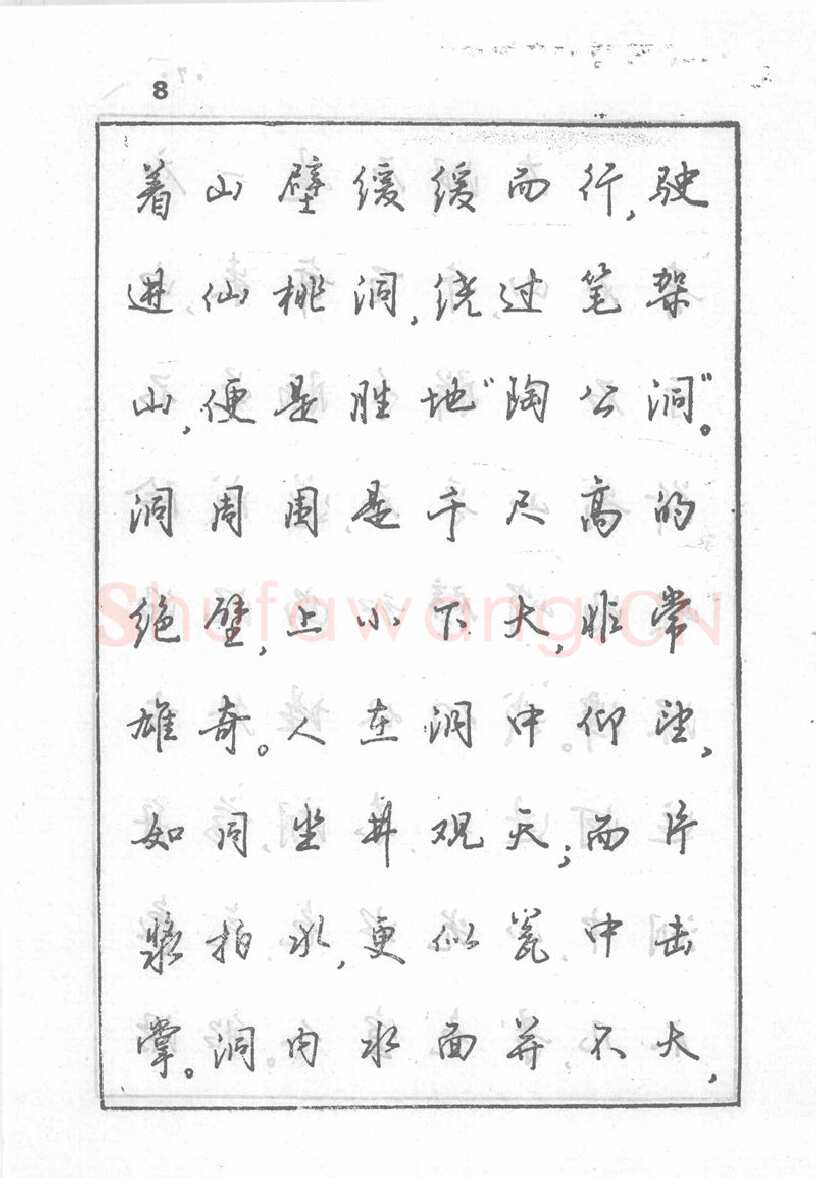 8
着山壁缓缓而行,驶
进仙桃洞,绕过笔架
山,便是胜地"陶公洞"。
洞周围是千尺高的
绝壁,上小下大,非常
雄奇。人在洞中仰望,
如同坐井观天;而片
桨拍水,更似瓮中击
掌。洞内水面并不大,
Shufawang.CN